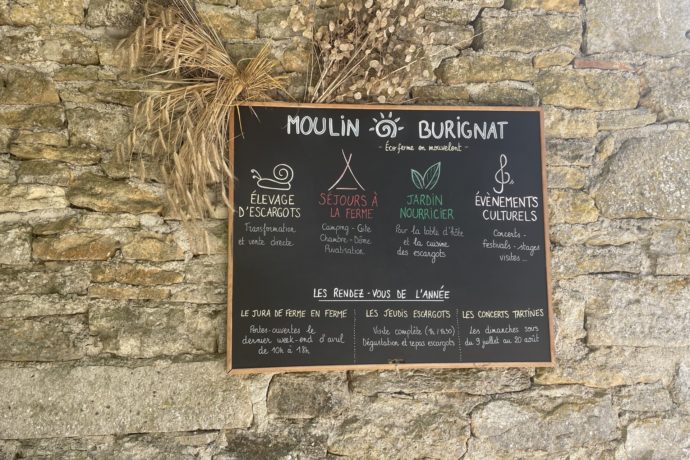 MOULIN BURIGNAT
- Éco ferme en mouvement -
ÉLEVAGE
D'ESCARGOTS
Transformation
et vente directe
SÉJOURS À
LA FERME
Camping - Gîte
Chambre - Dôme
Privatisation
JARDIN
NOURRICIER
Pour la table d'hôte
et la cuisine
des escargots
ÉVÈNEMENTS
CULTURELS
Concerts -
Festivals - stages
visites ...
LES RENDEZ-VOUS DE L'ANNÉE
LE JURA DE FERME EN FERME
Portes-ouvertes le
dernier week-end d'avril
de 10h à 18h
LES JEUDIS ESCARGOTS
Visite complète (1h/1h30)
Dégustation et repas escargots
LES CONCERTS TARTINES
Les dimanches soirs
du 9 juillet au 20 août